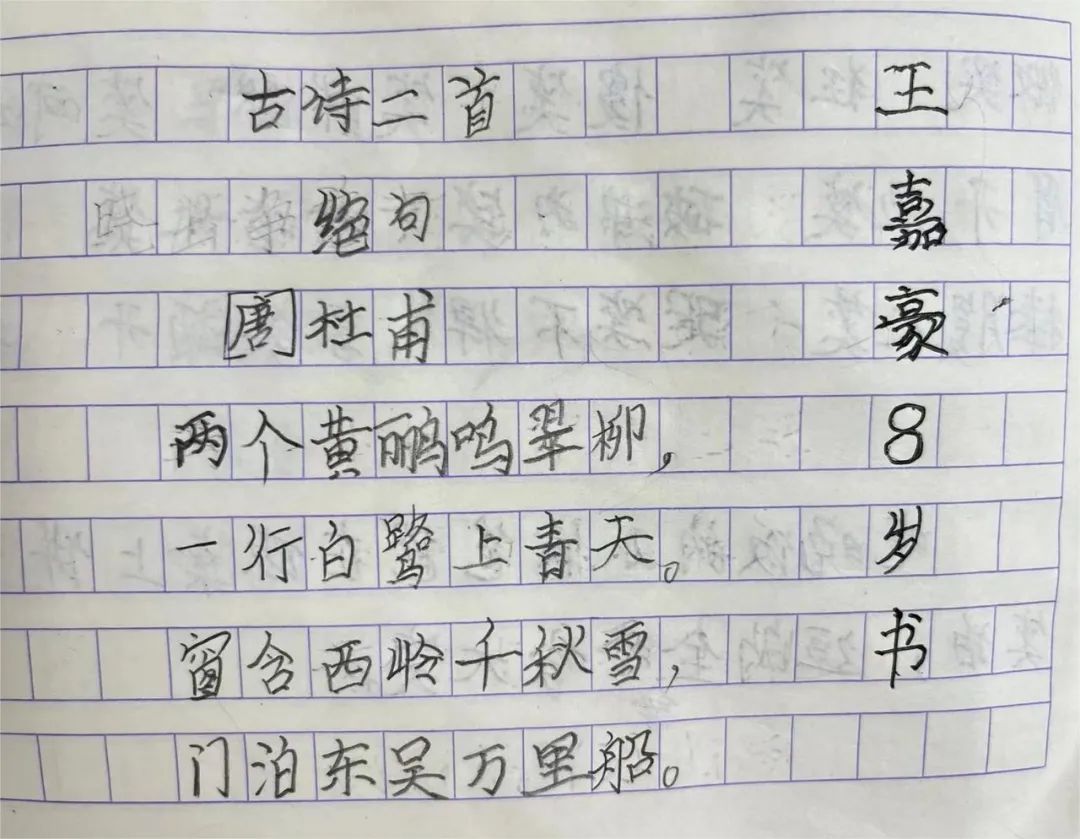 古诗二首
绝句
[唐]杜甫
两个黄鹂鸣翠柳，
一行白鹭上青天。
窗含西岭千秋雪，
门泊东吴万里船。
王嘉豪8岁书